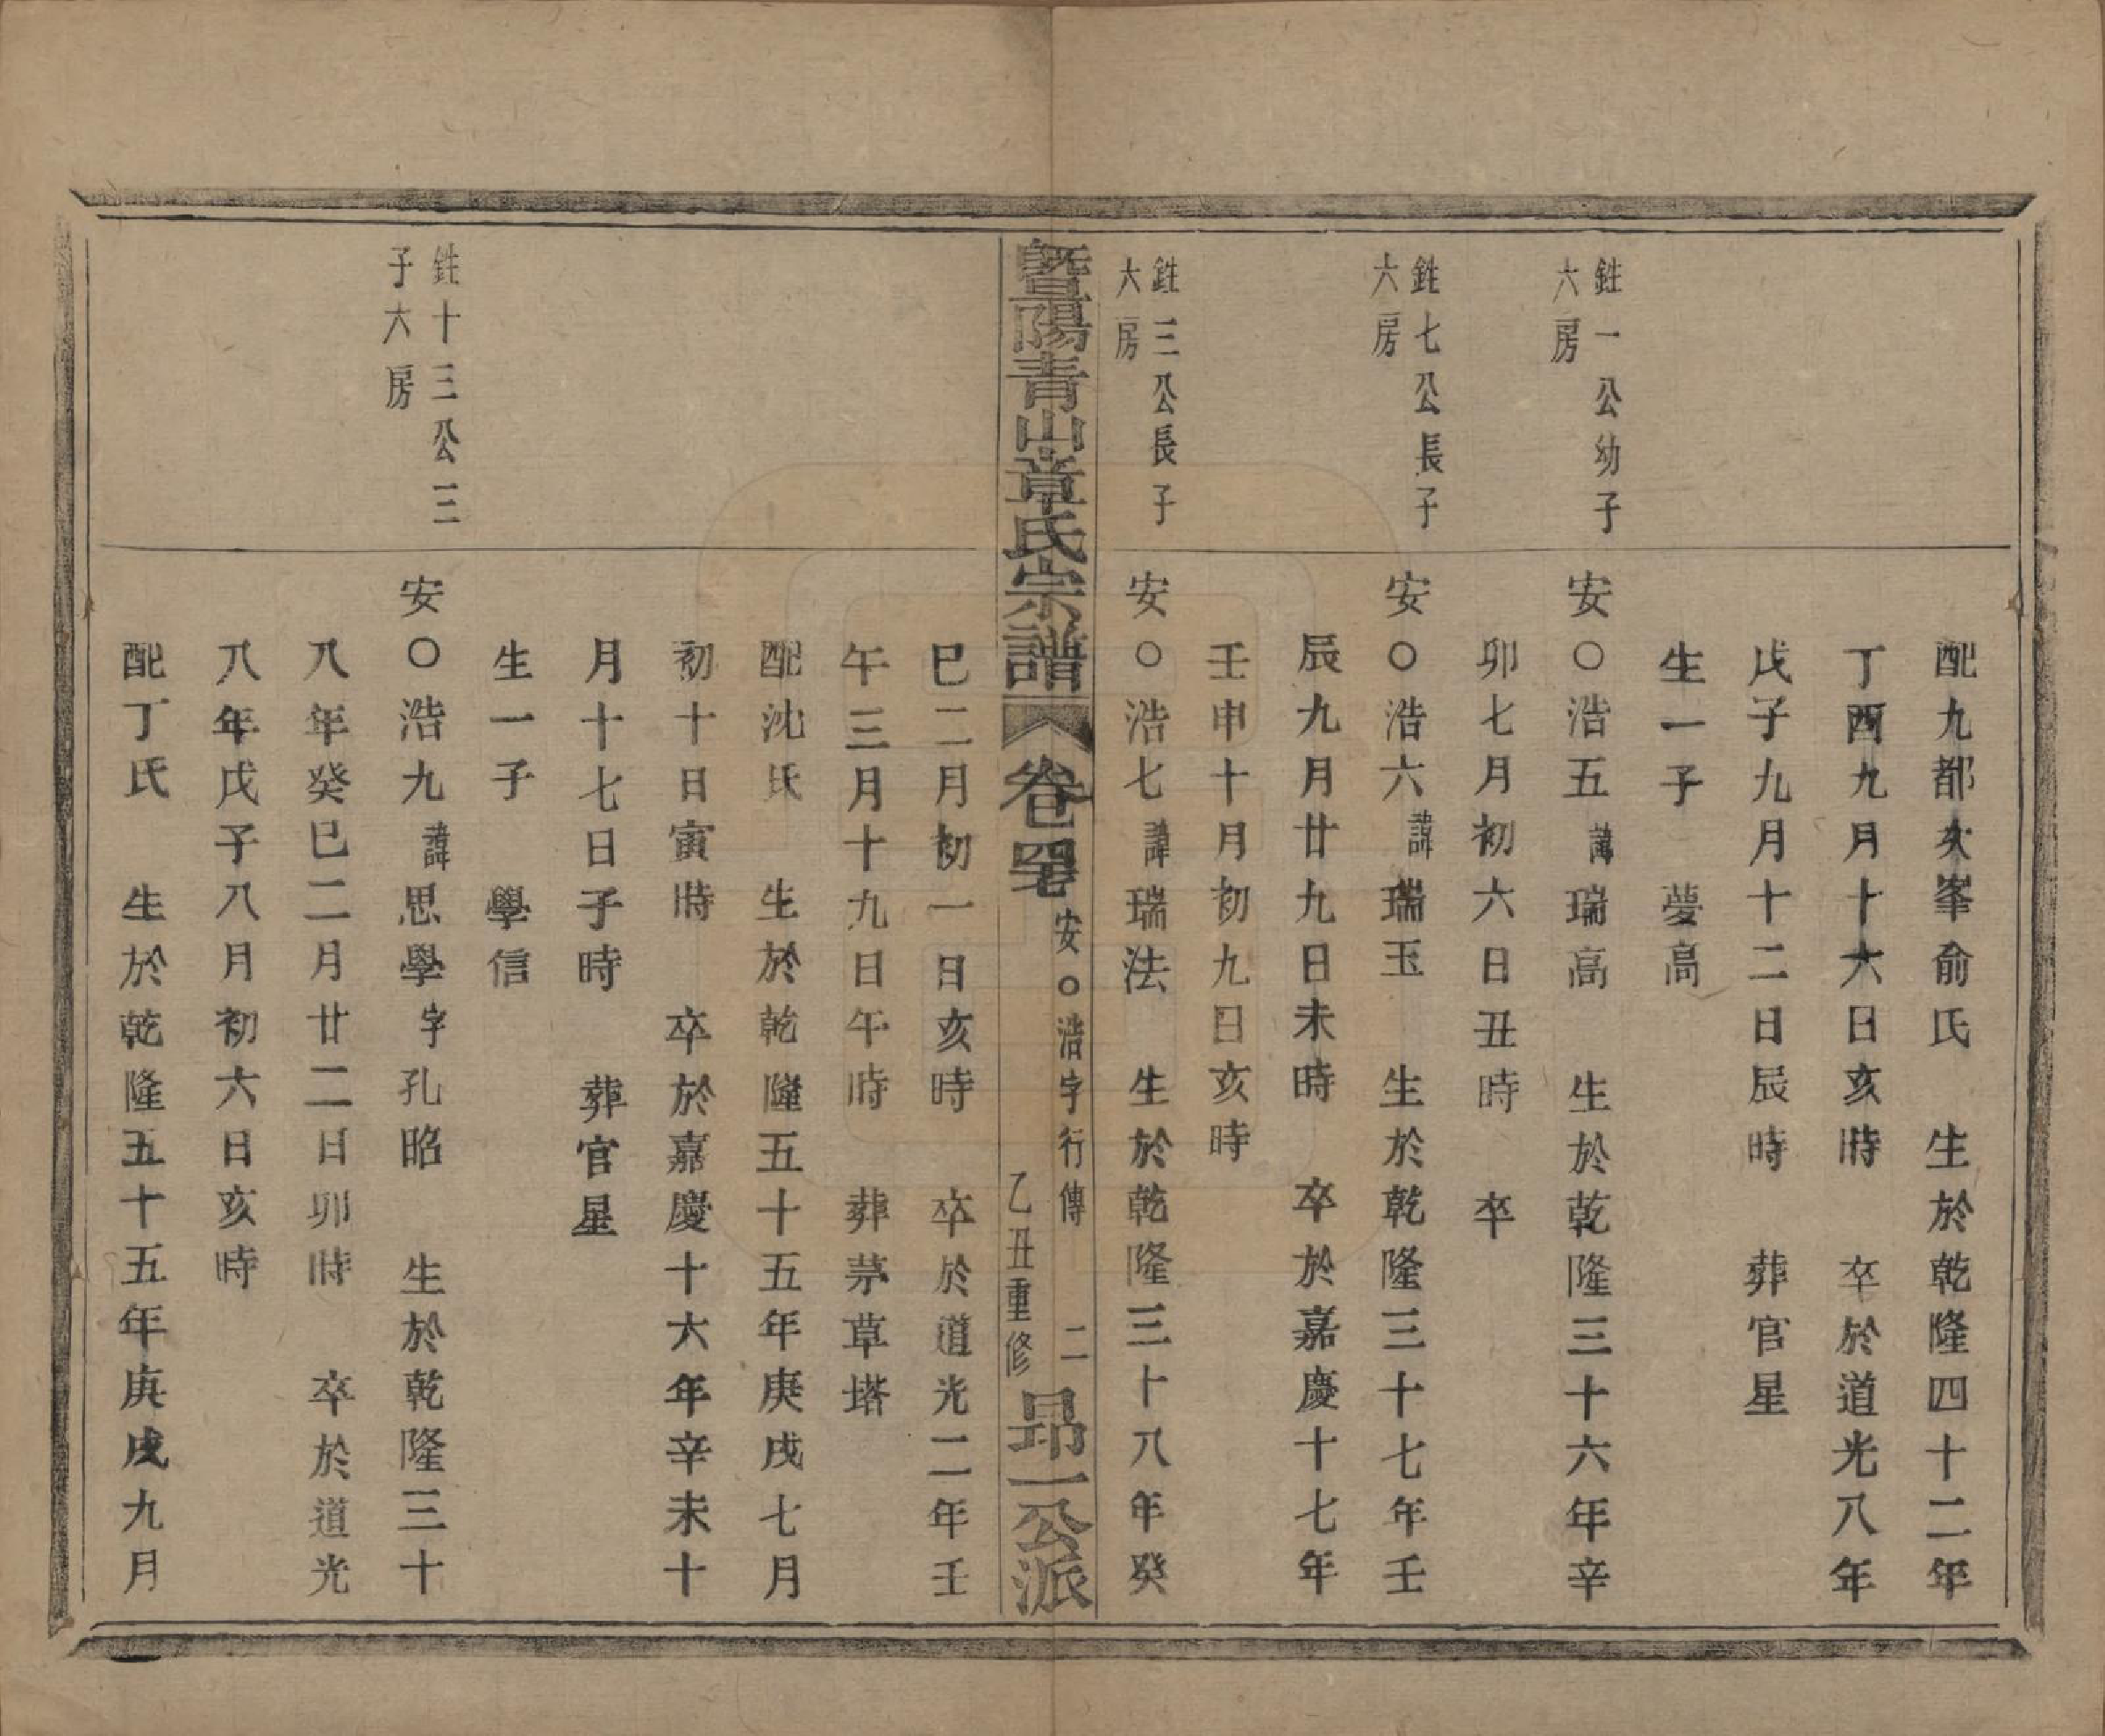 配九都夾峯俞氏　生於乾隆四十二年
丁酉九月十六日亥時　卒於道光八年
戊子九月十二日辰時　葬官星
生一子　夢高
銈一公幼子
六房
安〇浩五諱瑞高　生於乾隆三十六年辛
卯七月初六日丑時　卒
銈七公長子
六房
安〇浩六諱瑞玉　生於乾隆三十七年壬
辰九月廿九日未時　卒於嘉慶十七年
壬申十月初九日亥時
銈三公長子
大房
安〇浩七諱瑞法　生於乾隆三十八年癸
暨陽青山章氏宗譜　卷四十七　安〇浩字行傳　二　乙丑重修　昻一公派
巳二月初一日亥時　卒於道光二年壬
午三月十九日午時　葬茅草塔
配沈氏　生於乾隆五十五年庚戌七月
初十日寅時　卒於嘉慶十六年辛未十
月十七日子時　葬官星
生一子　學信
銈十三公三
子六房
安〇浩九諱思學字孔昭　生於乾隆三十
八年癸巳二月廿二日卯時　卒於道光
八年戊子八月初六日亥時
配丁氏　生於乾隆五十五年庚戌九月